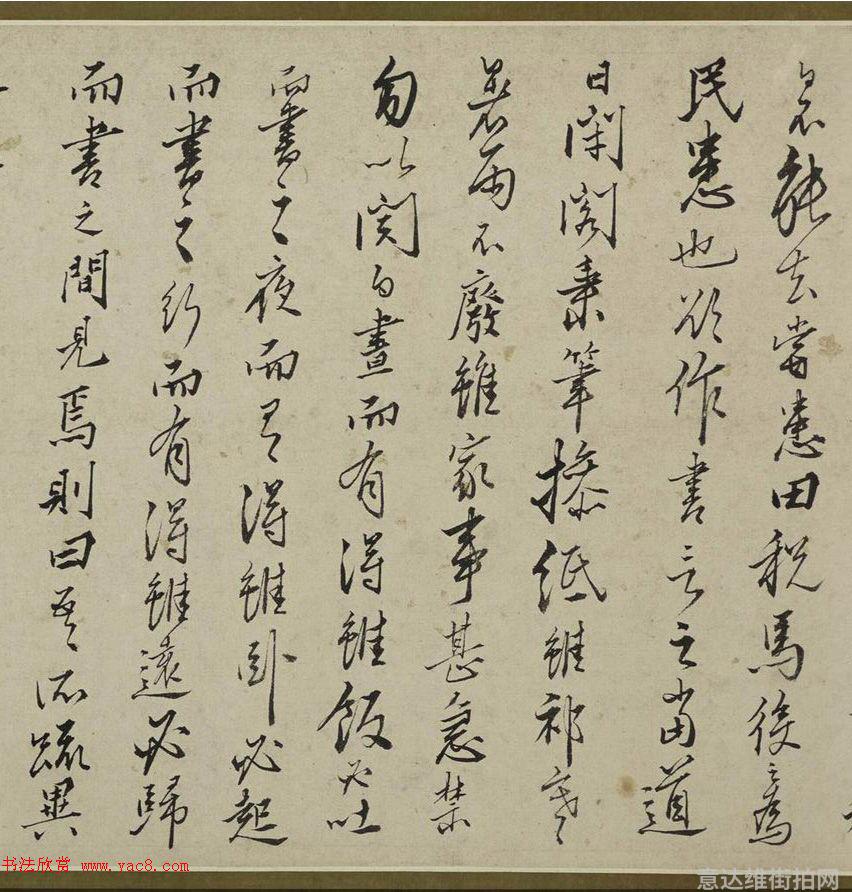 不能去嘗患田税馬役之為
民患也欲作書言之當道
日閉閣秉筆紙雖祁寒
暑雨不廢雖家事甚急禁
勿以関白晝而有得雖飯必吐
而書之夜而有得雖卧必起
而書之行而有得雖遠必歸
而書之間見焉則曰吾所疏異
书法欣赏 www.yac8.com
意达维街拍网